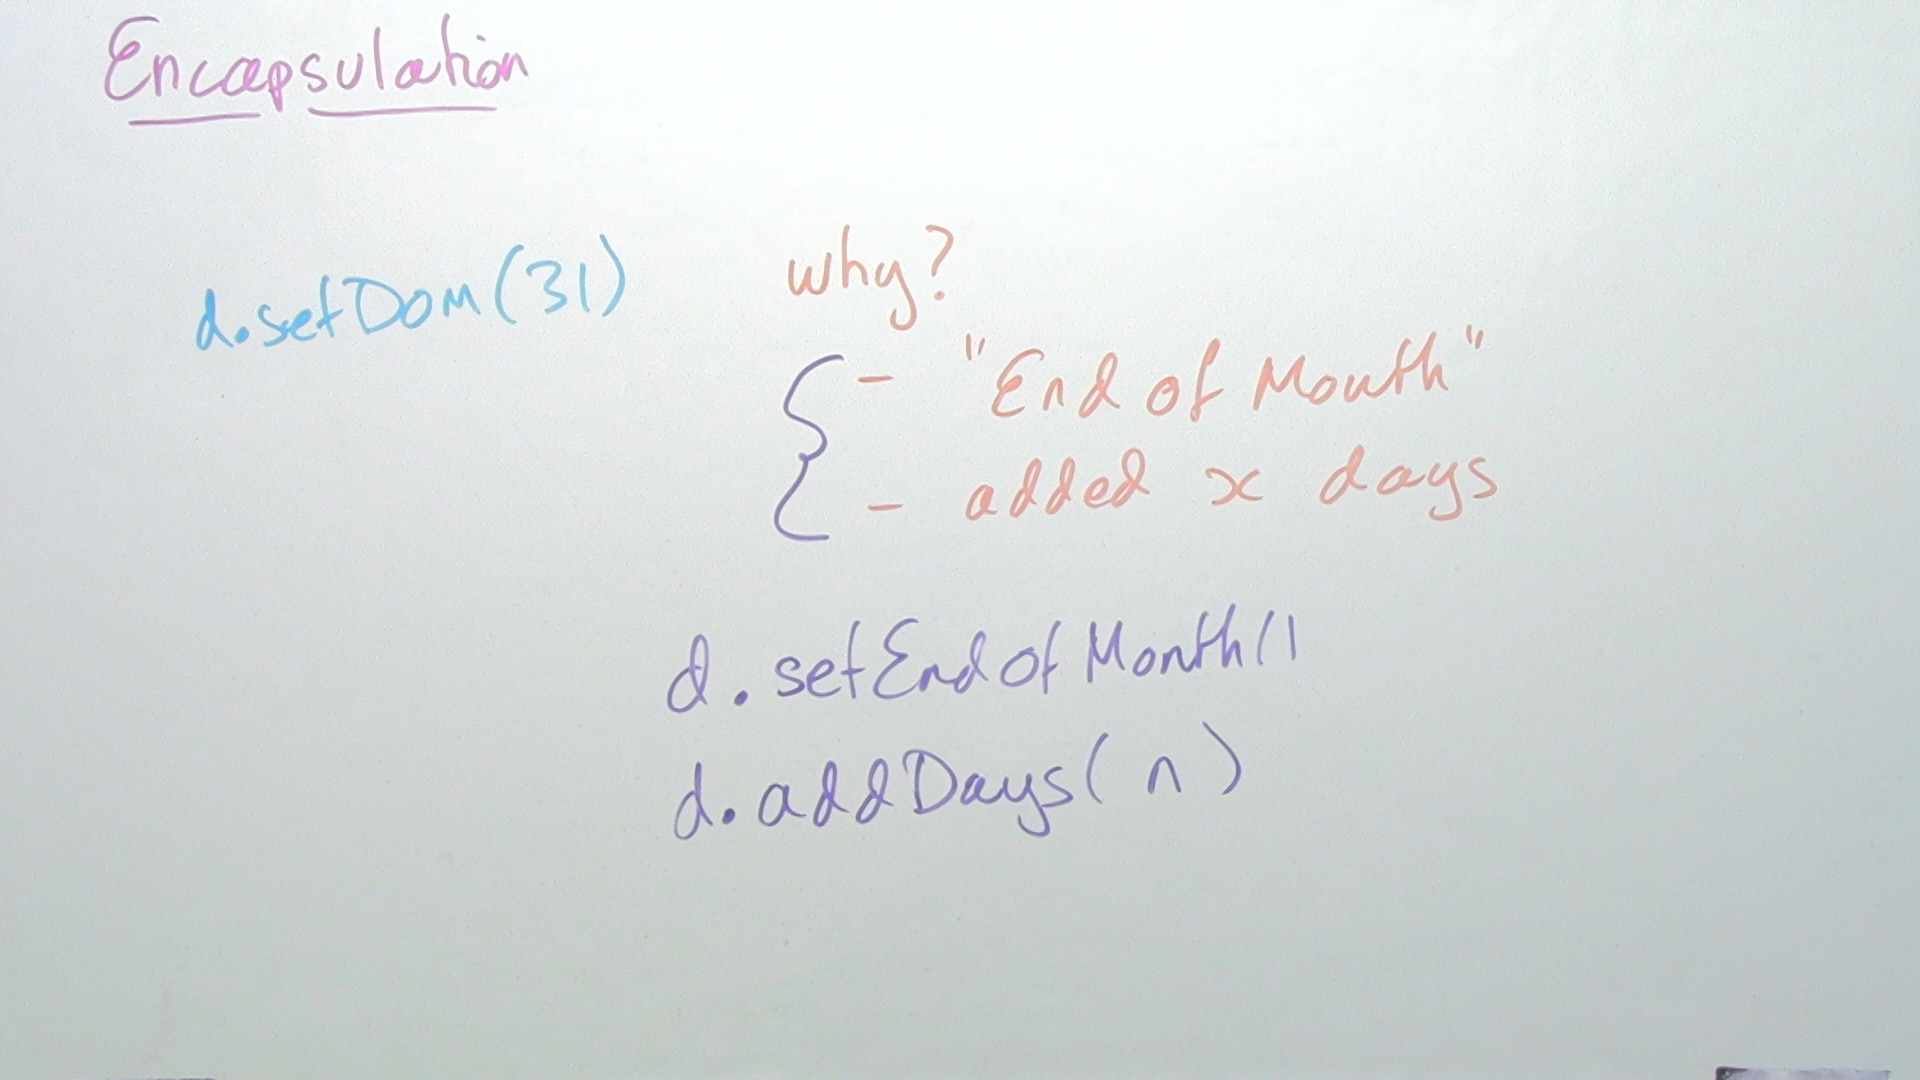 Encapsulation
d.setDOM(31)
why?
- "End of Month"
- added x days
d.setEndOfMonth()
d.addDays(n)